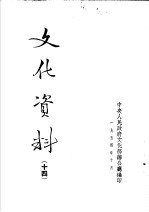 文化資料
(十四)
中央人民政府文化部辦公廳編印
一九五四年十月